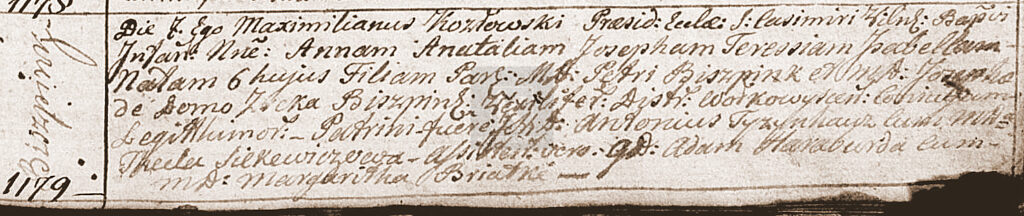 1178
Die 7. Ego Maximilianus Kozłowski Præsid: Eclæ: S: Casimiri Vilnę: Bapsvi
Infan: Nne: Annam Anataliam Josepham Teressiam Isabellam
Natam 6 hujus Filiam Par: MD: Petri Biszpink et MD:
de Domo Biszpink: Distr: Wołkowyscen: Coniugum
Legitthimor: – Patrini fuere MD: Antonius Tyzynhauz cum MD:
Thecla Silkewiczowa – Assistent: vero: GD: Adam Haraburda cum
MD: Margaritha Briatke —
1179